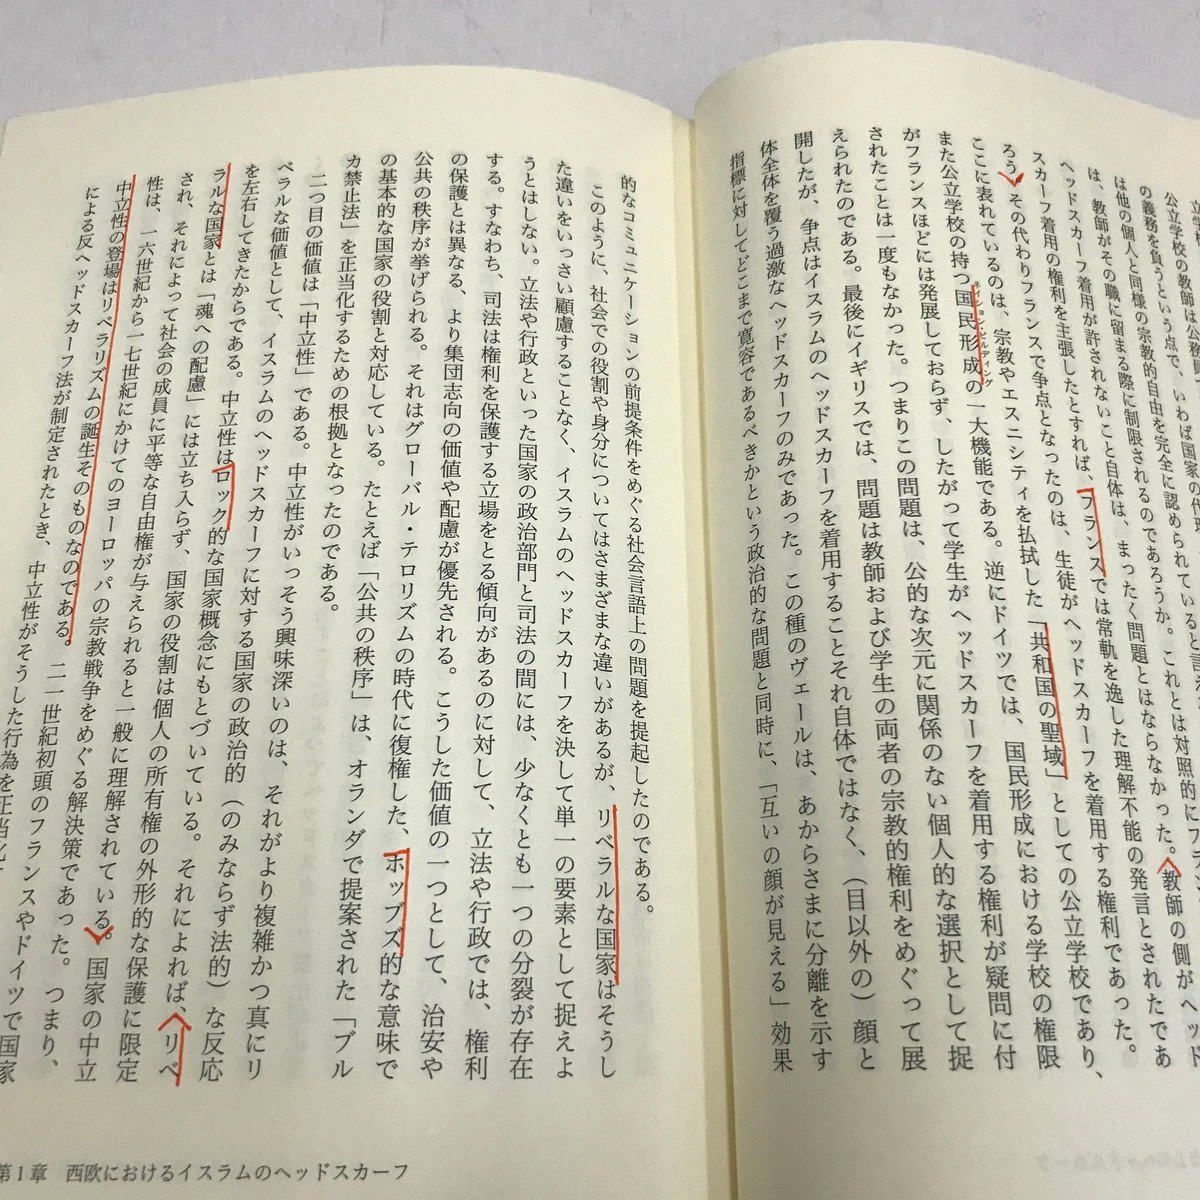 立学校
公立学校の教師は公務員
の義務を負うという点で、いわば国家の代
は他の個人と同様の宗教的自由を完全に認められていると言え
は、教師がその職に留まる際に制限されるのであろうか。これとは対照的にフラン
ヘッドスカーフ着用が許されないこと自体は、まったく問題とはならなかった。教師の側がヘッド
スカーフ着用の権利を主張したとすれば、フランスでは常軌を逸した理解不能の発言とされたであ
ろう。その代わりフランスで争点となったのは、生徒がヘッドスカーフを着用する権利であった。
ここに表れているのは、宗教やエスニシティを払拭した「共和国の聖域」としての公立学校であり、
また公立学校の持つ国民形成の一大機能である。逆にドイツでは、国民形成における学校の権限
ネイション・ビルディング
がフランスほどには発展しておらず、したがって学生がヘッドスカーフを着用する権利が疑問に付
されたことは一度もなかった。つまりこの問題は、公的な次元に関係のない個人的な選択として捉
えられたのである。最後にイギリスでは、問題は教師および学生の両者の宗教的権利をめぐって展
開したが、争点はイスラムのヘッドスカーフを着用することそれ自体ではなく、（目以外の）顔と
体全体を覆う過激なヘッドスカーフのみであった。この種のヴェールは、あからさまに分離を示す
指標に対してどこまで寛容であるべきかという政治的な問題と同時に、「互いの顔が見える」効果
的なコミュニケーションの前提条件をめぐる社会言語上の問題を提起したのである。
このように、社会での役割や身分についてはさまざまな違いがあるが、リベラルな国家はそうし
た違いをいっさい顧慮することなく、イスラムのヘッドスカーフを決して単一の要素として捉えよ
うとはしない。立法や行政といった国家の政治部門と司法の間には、少なくとも一つの分裂が存在
する。すなわち、司法は権利を保護する立場をとる傾向があるのに対して、立法や行政では、権利
の保護とは異なる、より集団志向の価値や配慮が優先される。こうした価値の一つとして、治安や
公共の秩序が挙げられる。それはグローバル・テロリズムの時代に復権した、ホッブズ的な意味で
の基本的な国家の役割と対応している。たとえば「公共の秩序」は、オランダで提案された「ブル
カ禁止法」を正当化するための根拠となったのである。
二つ目の価値は「中立性」である。中立性がいっそう興味深いのは、それがより複雑かつ真にリ
ベラルな価値として、イスラムのヘッドスカーフに対する国家の政治的（のみならず法的）な反応
を左右してきたからである。中立性はロック的な国家概念にもとづいている。それによれば、リベ
ラルな国家とは「魂への配慮」には立ち入らず、国家の役割は個人の所有権の外形的な保護に限定
され、それによって社会の成員に平等な自由権が与えられると一般に理解されている。国家の中立
性は、一六世紀から一七世紀にかけてのヨーロッパの宗教戦争をめぐる解決策であった。つまり、
中立性の登場はリベラリズムの誕生そのものなのである。二一世紀初頭のフランスやドイツで国家
による反ヘッドスカーフ法が制定されたとき、中立性がそうした行為を正当化
第1章 西欧におけるイスラムのヘッドスカーフ